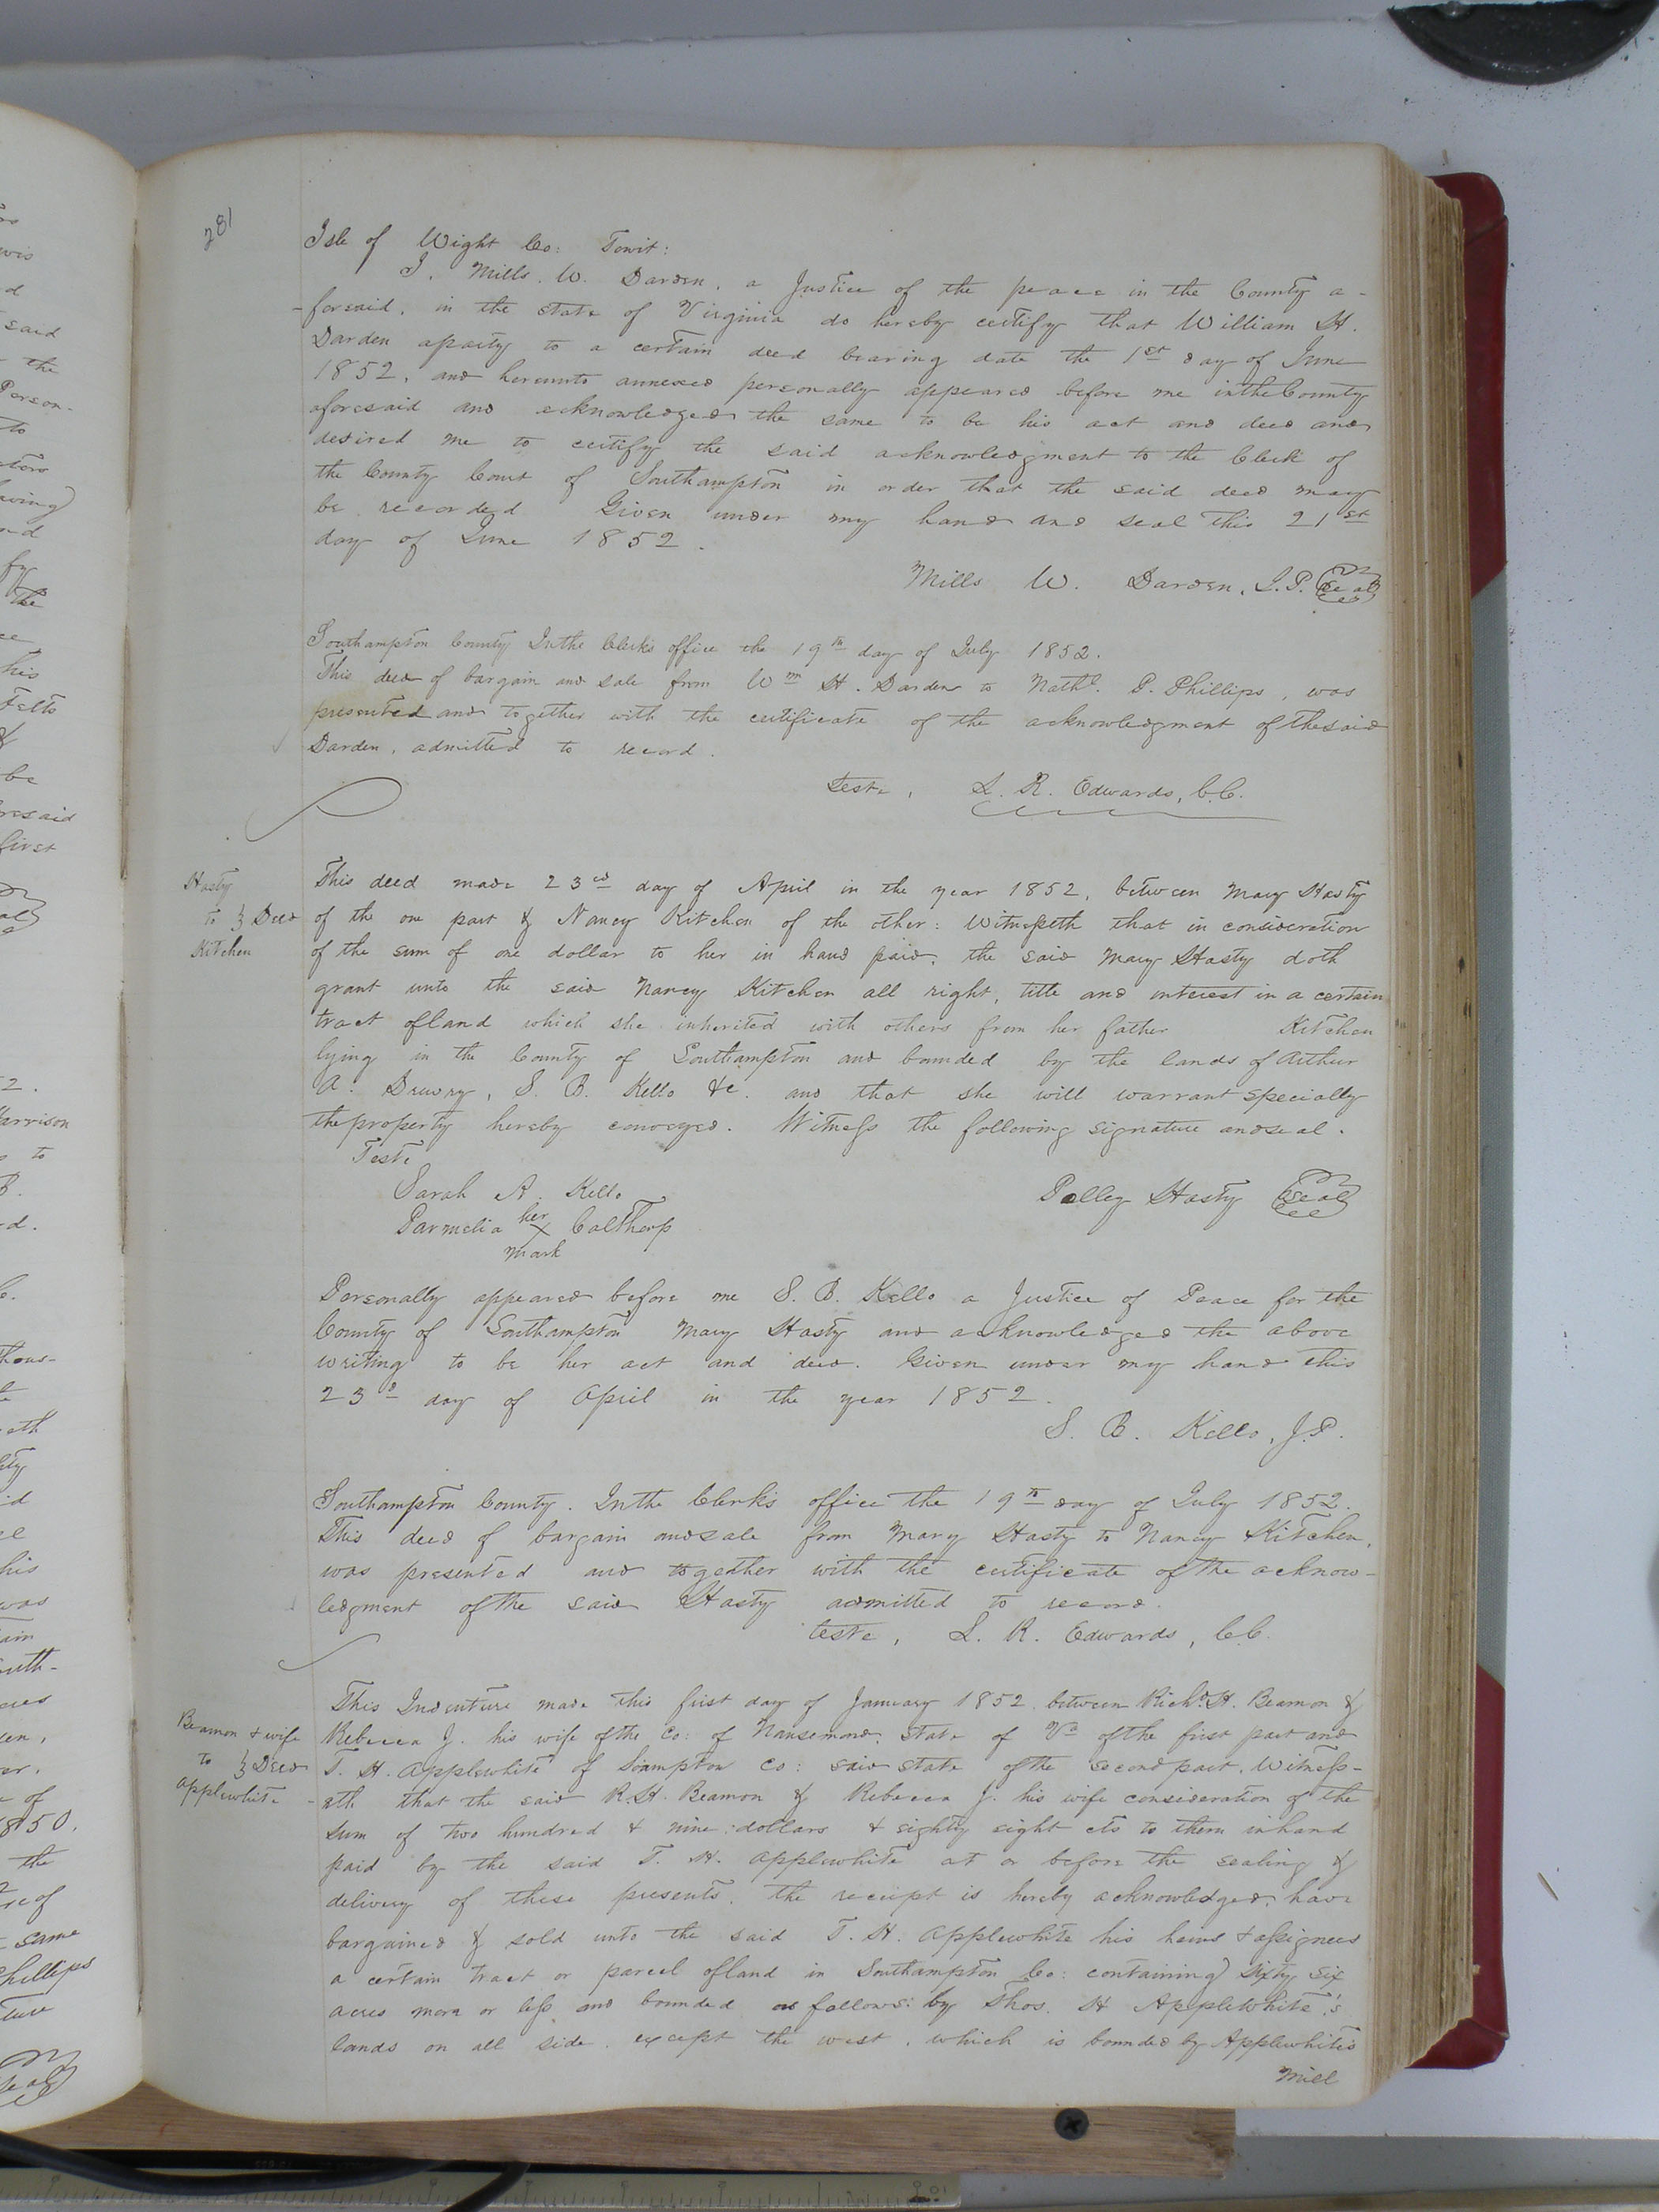 281
Isle of Wight Co: Towit:
I, Mills. W. Darden, a Justice of the peace in the County a-
-foresaid, in the state of Virginia do hereby certify that William H.
Darden aparty to a certain deed bearing date the 1st day of June
1852, and hereunto annexed personally appeared before me inthe County
aforesaid and acknowledged the same to be his act and deed and
desired me to certify the said acknowledgment to the Clerk of
the County Court of Southampton in order that the said deed may
be recorded Given under my hand and seal this 21st
day of June 1852.
Mills W. Darden, J.P. Seal
Southampton County Inthe Clerks office the 19th day of July 1852.
This deed of bargain and sale from Wm H. Darden to Nathl. P. Phillips, was
presented and together with the certificate of the acknowledgment of thesaid
Darden, admitted to record.
Teste, L. R. Edwards, C.C.
Hasty
to } Deed
Kitchen
This deed made 23rd day of April in the year 1852, between Mary Hasty
of the one part & Nancy Kitchen of the other: Witnesseth that in consideration
of the sum of one dollar to her in hand paid, the said Mary Hasty doth
grant unto the said Nancy Kitchen all right, title and interest in a certain
tract ofland which she inherited with others from her father Kitchen
lying in the County of Southampton and bounded by the lands of Arthur
A. Drewry, S. B. Kello &c. and that she will warrant specially
theproperty hereby conveyed. Witness the following signature andseal.
Teste
Sarah A. Kello
Polley Hasty Seal
Parmelia her x mark Calthorp
Personally appeared before me S. B. Kello a Justice of Peace for the
County of Southampton Mary Hasty and acknowledged the above
writing to be her act and deed. Given under my hand this
23d day of April in the year 1852.
S. B. Kello, J.P.
Southampton County. Inthe Clerk's office the 19th day of July 1852.
This deed of bargain andsale from Mary Hasty to Nancy Kitchen,
was presented and together with the certificate of the acknow-
ledgment ofthe said Hasty admitted to record.
teste, L. R. Edwards, C.C.
Beamon & wife
to } Deed
Applewhite
This Indenture made this first day of January 1852 between Richd. H. Beamon &
Rebecca J. his wife ofthe Co: of Nansemond, State of Va ofthe first part and
T. H. Applewhite of Sampton Co: said state ofthe secondpart. Witness-
-eth that the said R. H. Beamon & Rebecca J. his wife consideration of the
sum of two hundred & nine dollars & eighty eight cts to them inhand
paid by the said T. H. Applewhite at or before the sealing &
delivery of these presents, the receipt is hereby acknowledged, have
bargained & sold unto the said T. H. Applewhite his heirs & assignees
a certain tract or parcel ofland in Southampton Co: containing) Sixty Six
acres more or less and bounded as follows: by Thos. H Applewhite's
lands on all side, except the west, which is bounded by Applewhite's
Mill